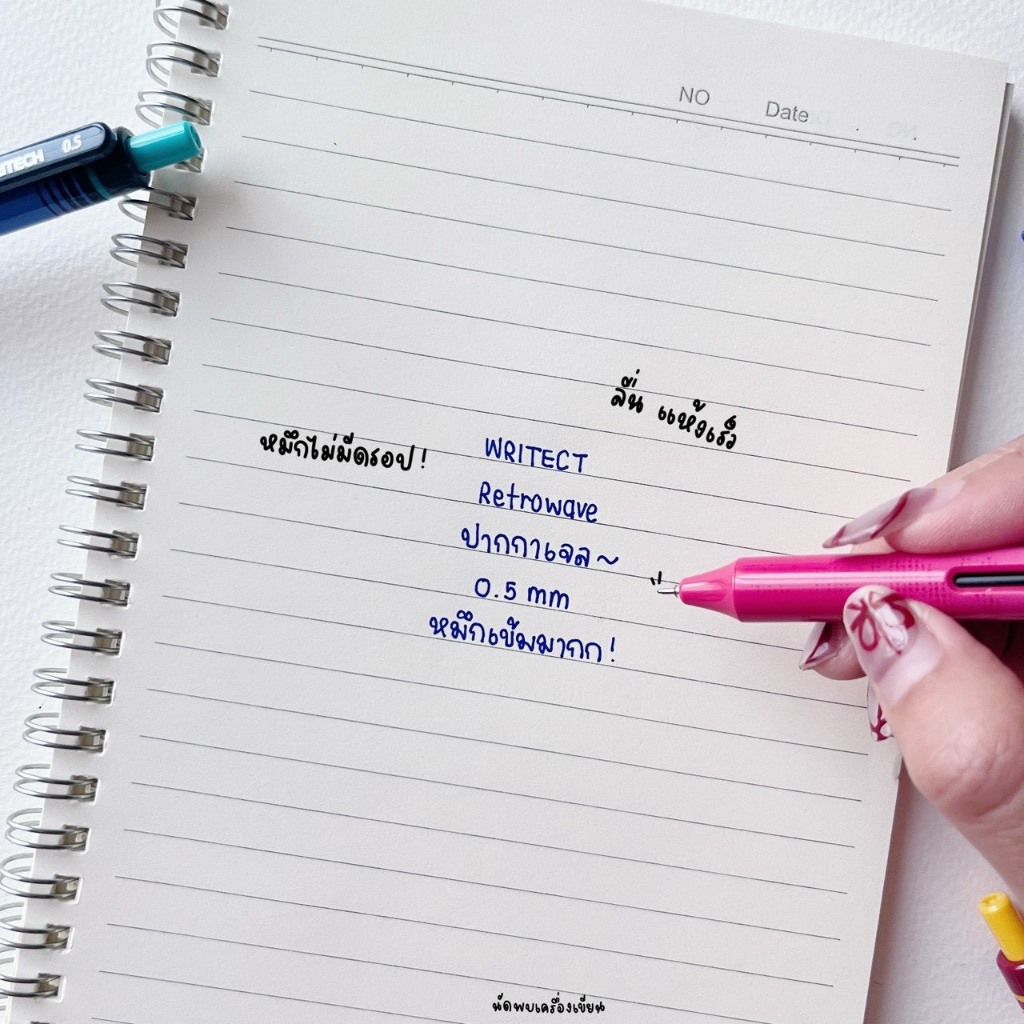 NO Date
ITECH 0.5
ลื่น แห้งเร็ว
หมึกไม่มีดรอป!
WRITECT
Retrowave
ปากกาเจล~
0.5 mm
หมึกเข้มมากก!
นัดพบเครื่องเขียน